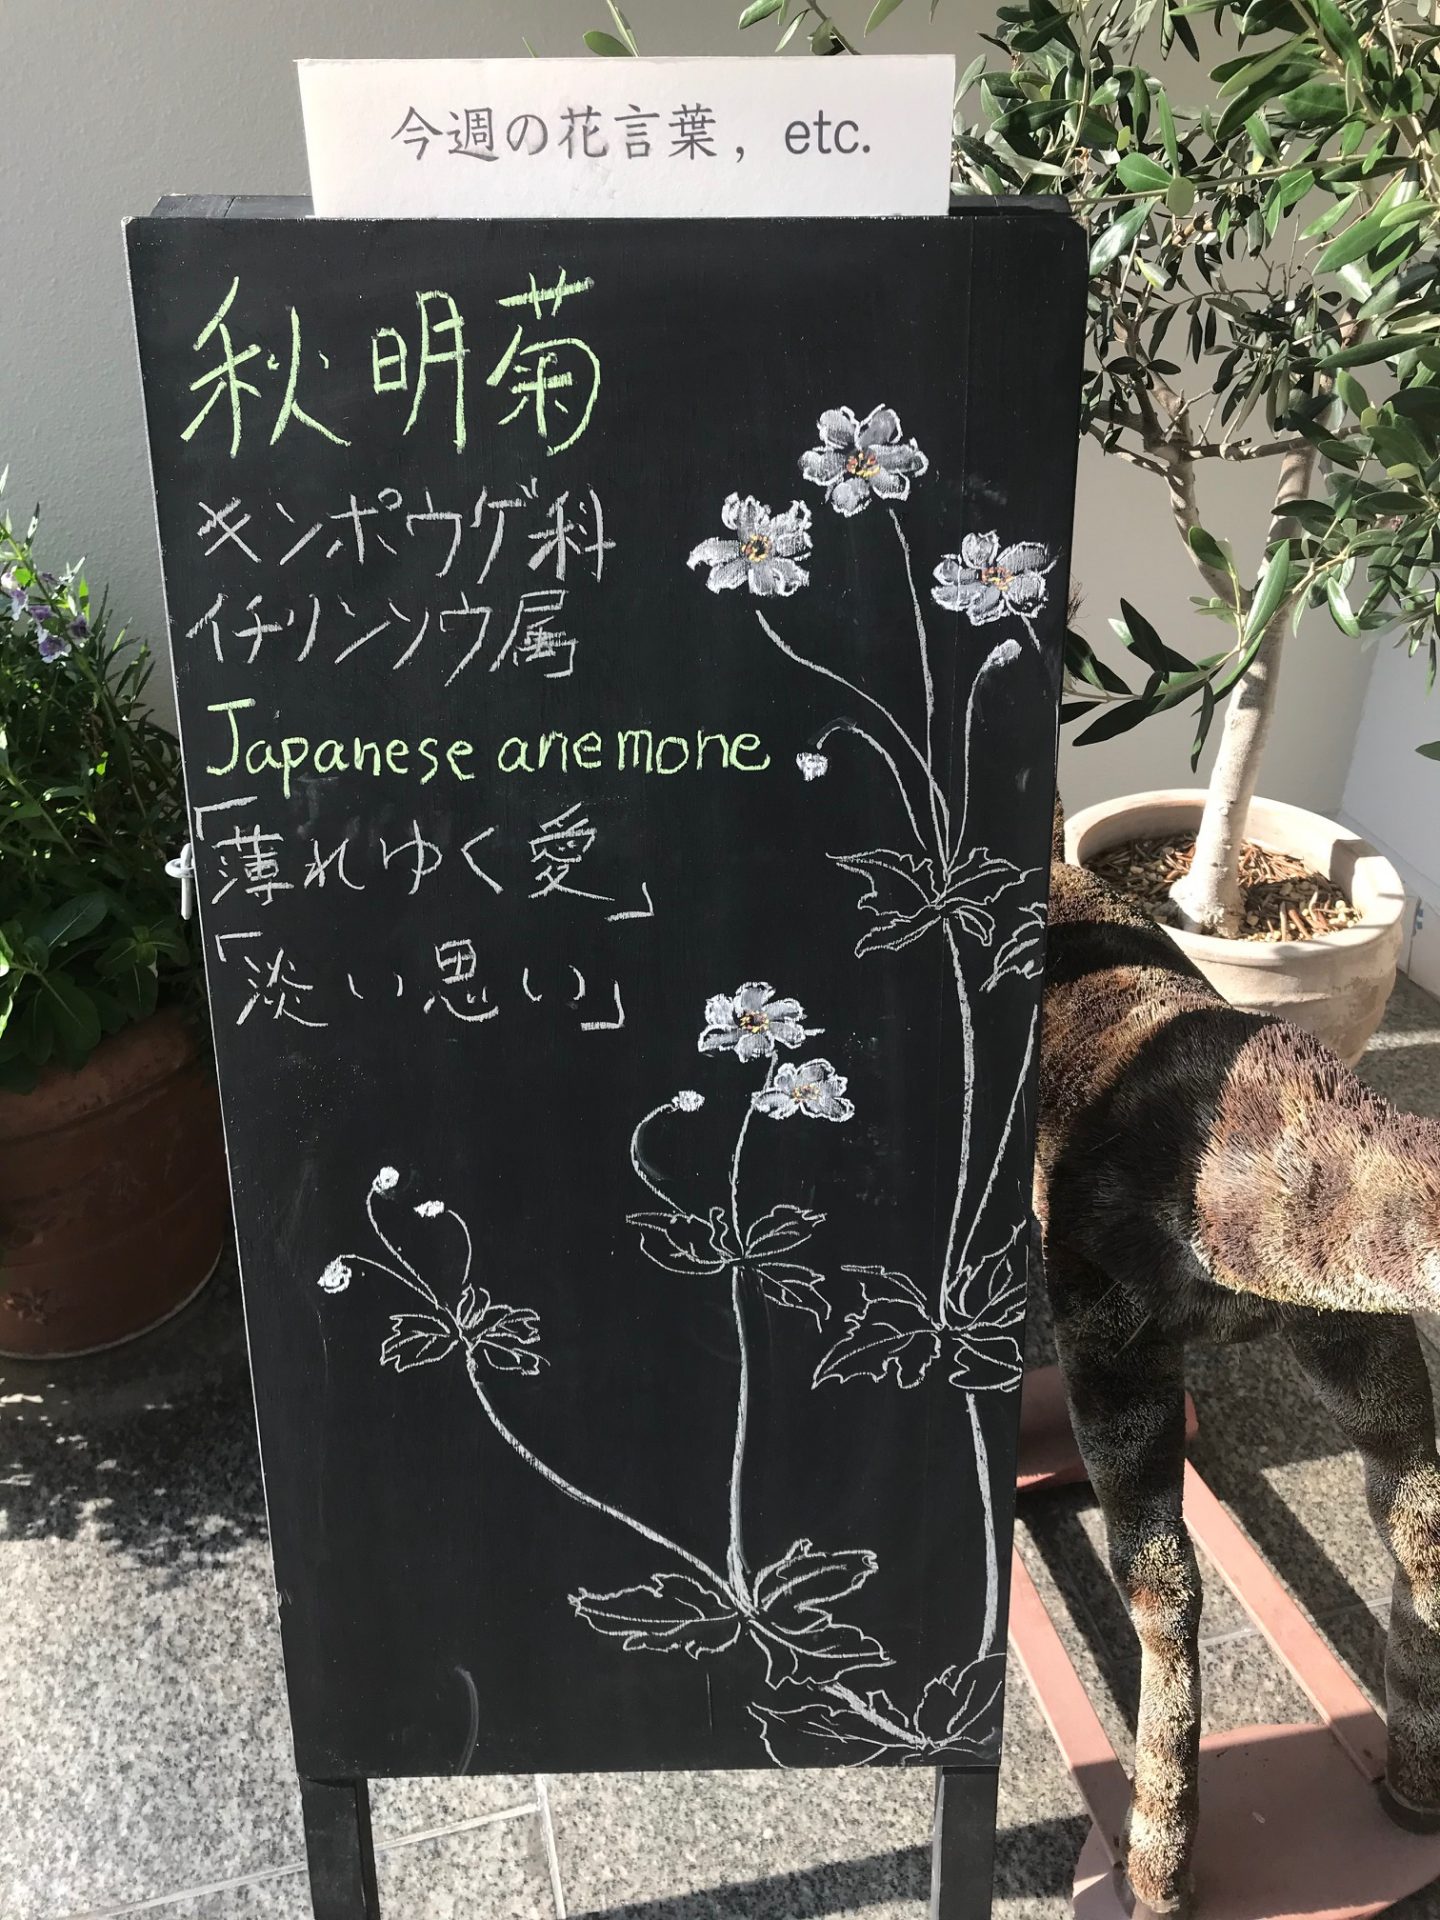 今週の花言葉，etc.
秋明菊
キンポウゲ科
イチリンソウ属
Japanese anemone
「薄れゆく愛」
「淡い思い」